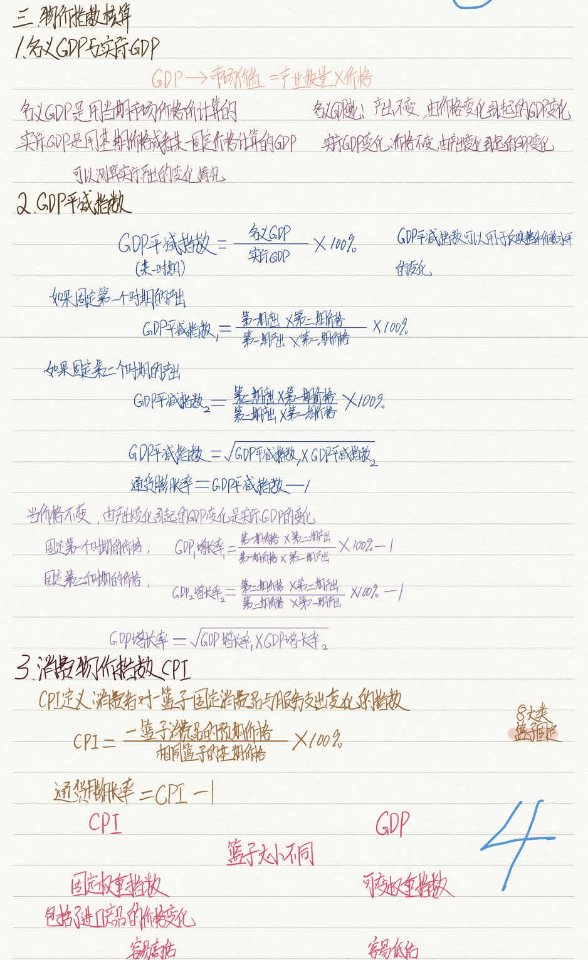 三.物价指数核算
1.名义GDP与实际GDP
GDP→市场价值=产业数量×价格
名义GDP是用当期市场价格计算的
名义GDP变化:产出不变,由价格变化引起的GDP变化
实际GDP是用基期价格或某一固定价格计算的GDP
实际GDP变化:价格不变,由产出变化引起的GDP变化
可以测算实际产出的变化情况
2.GDP平减指数
GDP平减指数=名义GDP/实际GDP×100%
(某一时期)
GDP平减指数可以用于反映整体价格水平
的变化
如果固定第一个时期的产出
GDP平减指数1=第一期产出×第二期价格/第一期产出×第一期价格×100%
如果固定第二个时期的产出
GDP平减指数2=第二期产出×第二期价格/第二期产出×第一期价格×100%
GDP平减指数=√GDP平减指数1×GDP平减指数2
通货膨胀率=GDP平减指数—1
当价格不变,由产出变化引起的GDP变化是实际GDP的变化
固定第一个时期的价格,
GDP1增长率=第一期价格×第二期产出/第一期价格×第一期产出×100%-1
固定第二个时期的价格,
GDP2增长率2=第二期价格×第二期产出/第二期价格×第一期产出×100%-1
GDP增长率=√GDP增长率1×GDP增长率2
3.消费物价指数CPI
CPI定义:消费者对一篮子固定消费品与服务支出变化的指数
8大类
篮子固定
CPI=一篮子消费品的现期价格/相同篮子的基期价格×100%
通货膨胀率=CPI-1
CPI GDP
篮子大小不同
固定权重指数 可变权重指数
包括了进口产品的价格变化
容易高估 容易低估
4